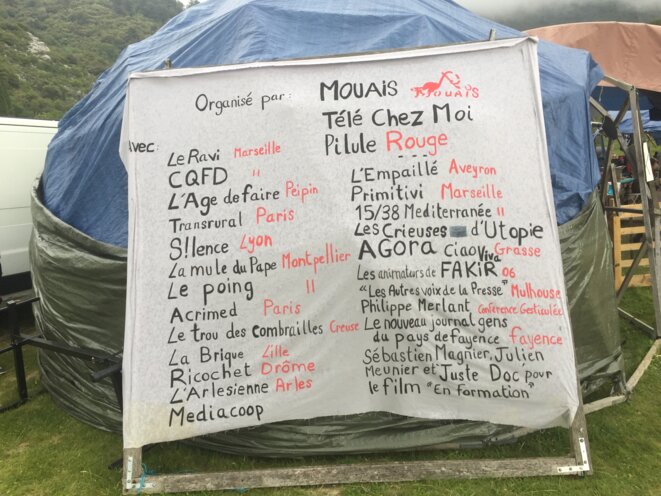 Organisé par: MOUAIS MOUAIS
Télé Chez Moi
Pilule Rouge
Avec:
Le Ravi Marseille
CQFD "
L'Age de faire Peipin
Transrural Paris
S!lence Lyon
La mule du Pape Montpellier
Le poing "
Acrimed Paris
Le trou des combrailles Creuse
La Brique Lille
Ricochet Drôme
L'Arlesienne Arles
Mediacoop
L'Empaillé Aveyron
Primitivi Marseille
15/38 Mediterranée "
Les Crieuses d'Utopie
AGORA Ciao Viva Grasse
Les animateurs de FAKIR 06
"Les Autres voix de la Presse" Mulhouse
Philippe Merlant Conférence Gesticulée
Le nouveau journal gens
du pays de fayence fayence
Sébastien Magnier, Julien
Meunier et Juste Doc pour
le film "En formation"